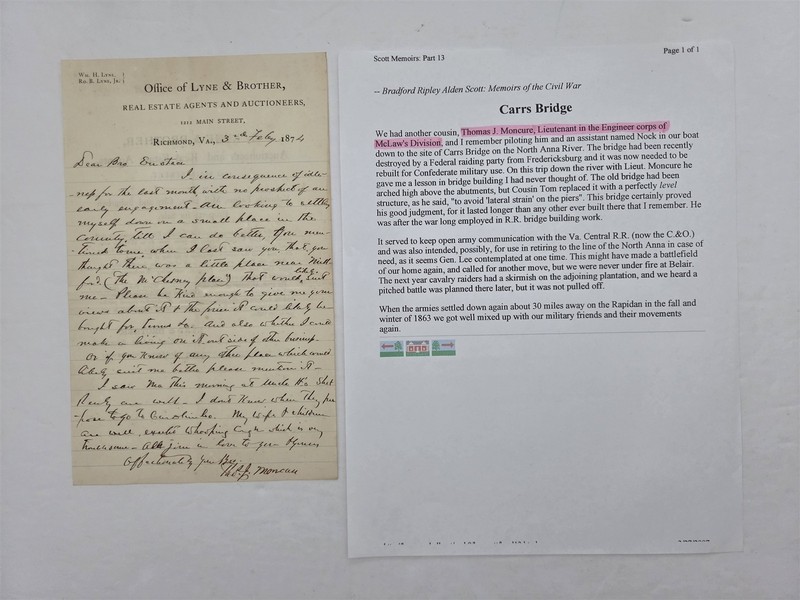 Wm. H. Lyne,
Ro. B. Lyne, Jr.
Office of LYNE & BROTHER,
REAL ESTATE AGENTS AND AUCTIONEERS,
1212 MAIN STREET,
RICHMOND, VA., 3rd Feby 1874
Dear Bro
I in consequence of idle-
-ness for the last month with no prospect of an
early engagement - Am looking to settling
myself down on a small place in the
Country, till I can do better, You men-
tioned to me when I last saw you, that you
thought there was a little place near Mill-
ford (The McChesney place) that would likely suit
me - Please be kind enough to give me your
views about it & the price it could likely be
bought for, terms &c. And also whether I could
make a living on it, outside of other business.
Or if you know of any other place which would
likely suit me better please mention it -
I saw Ma this morning at Uncle
are well - I don't know when they pur-
-pose to go to Columbia. My wife & children
are well, except whooping cough which is very
troublesome - All join in love to you
Affectionately Your Bro
Thos J. Moncure
Scott Memoirs: Part 13
Page 1 of 1
-- Bradford Ripley Alden Scott: Memoirs of the Civil War
Carrs Bridge
We had another cousin, Thomas J. Moncure, Lieutenant in the Engineer corps of
McLaw's Division, and I remember piloting him and an assistant named Nock in our boat
down to the site of Carrs Bridge on the North Anna River. The bridge had been recently
destroyed by a Federal raiding party from Fredericksburg and it was now needed to be
rebuilt for Confederate military use. On this trip down the river with Lieut. Moncure he
gave me a lesson in bridge building I had never thought of. The old bridge had been
arched high above the abutments, but Cousin Tom replaced it with a perfectly level
structure, as he said, "to avoid 'lateral strain' on the piers". This bridge certainly proved
his good judgment, for it lasted longer than any other ever built there that I remember. He
was after the war long employed in R.R. bridge building work.
It served to keep open army communication with the Va. Central R.R. (now the C.&O.)
and was also intended, possibly, for use in retiring to the line of the North Anna in case of
need, as it seems Gen. Lee contemplated at one time. This might have made a battlefield
of our home again, and called for another move, but we were never under fire at Belair.
The next year cavalry raiders had a skirmish on the adjoining plantation, and we heard a
pitched battle was planned there later, but it was not pulled off.
When the armies settled down again about 30 miles away on the Rapidan in the fall and
winter of 1863 we got well mixed up with our military friends and their movements
again.